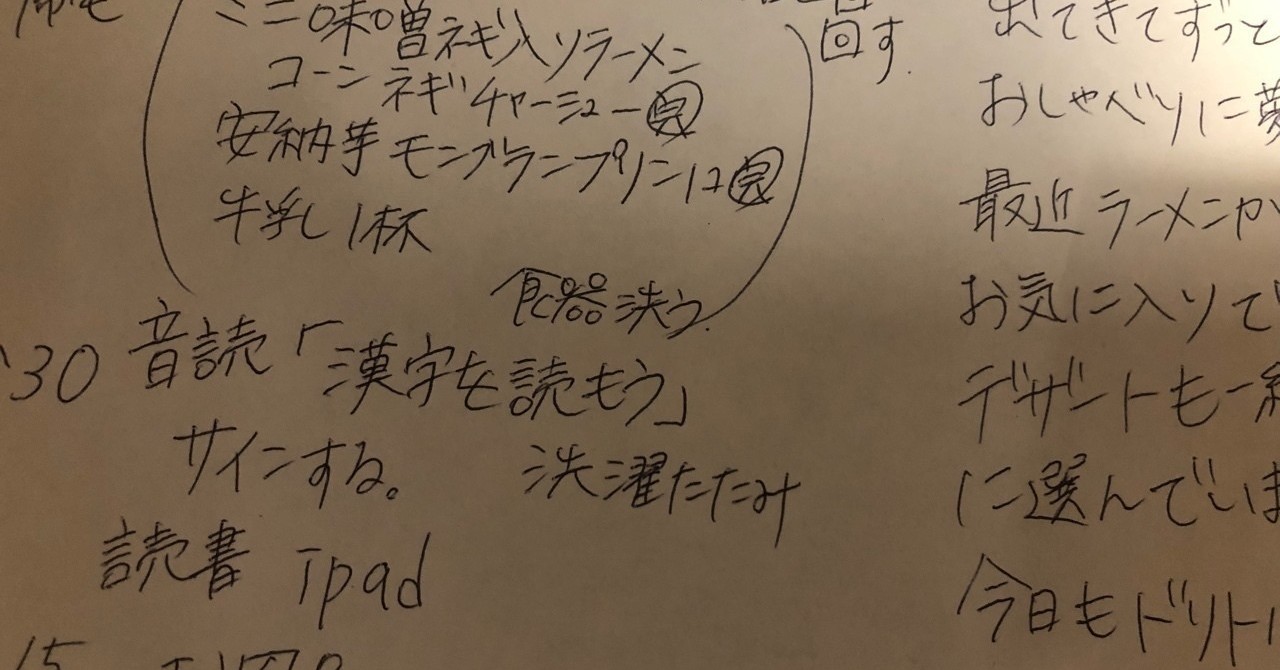 帰宅
ミニ味噌ネギ入りラーメン
コーン ネギ チャーシュー完
安納芋モンブランプリン1コ完
牛乳1杯
食器洗う
30 音読「漢字を読もう」
サインする。 洗濯たたみ
読書 ipad
15
回す.
出てきてずっと
おしゃべりに夢
最近ラーメンが
お気に入りで
デザートも一緒
に選んでいま
今日もドリトル